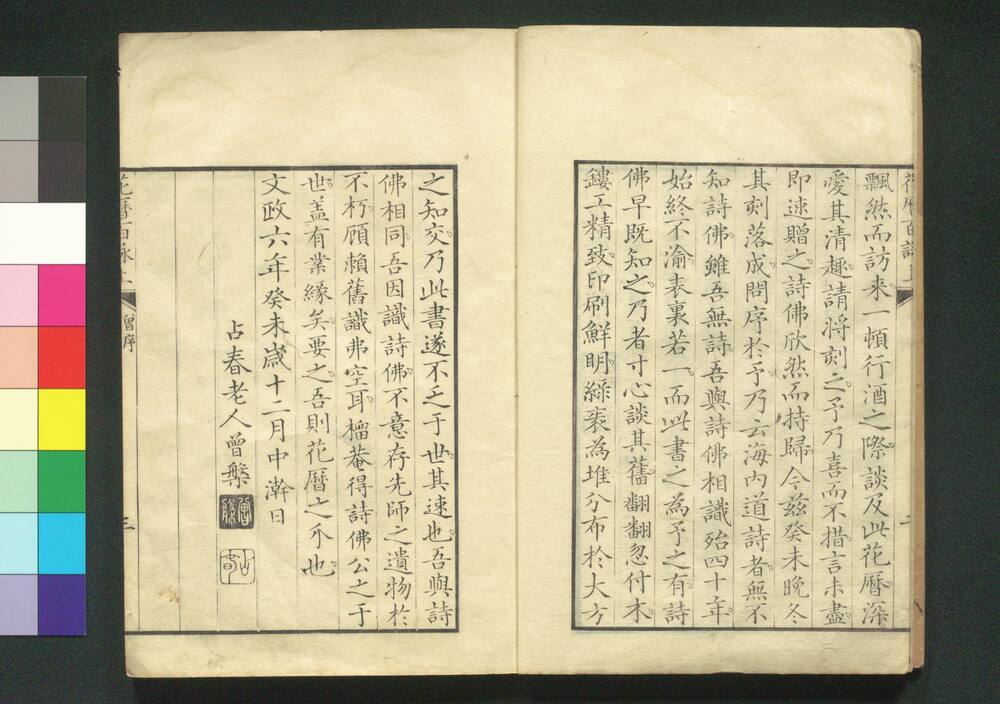 花暦百詠上
飄然而訪来一頓行酒之際談及此花暦深
愛其清趣請将刻之予乃喜而不措言未盡
即速贈之詩佛欣然而持歸今茲癸未晩冬
其刻落成問序於予乃云海内道詩者無不
知詩佛雖吾無詩吾與詩佛相識殆四十年
始終不渝表裏若一而此書之為予之有詩
佛早既知之乃者寸心談其舊翻翻忽付木
鏤工精致印刷鮮明緑袠為堆分布於大方
之知交乃此書遂不乏于世其速也吾與詩
佛相同吾因識詩佛不意存先師之遺物於
不朽顧賴舊識弗空耳榴菴得詩佛公之于
世盖有業縁矣要之吾則花暦之尒也
文政六年癸未歳十二月中澣日
占春老人曾槃
花暦百詠上
曾序
三